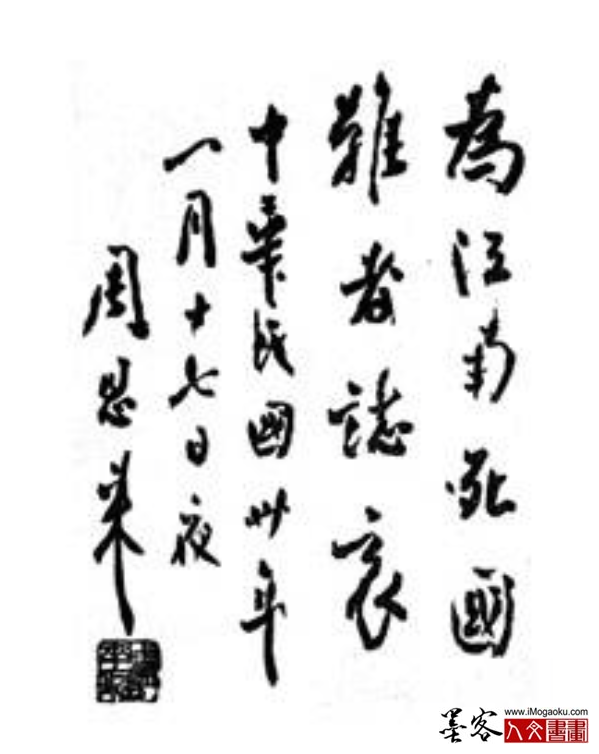 為江南死國
難者誌哀
中華民國卅年
一月十七日夜
周恩來
墨客
www.iMogaoku.com
人文書畫